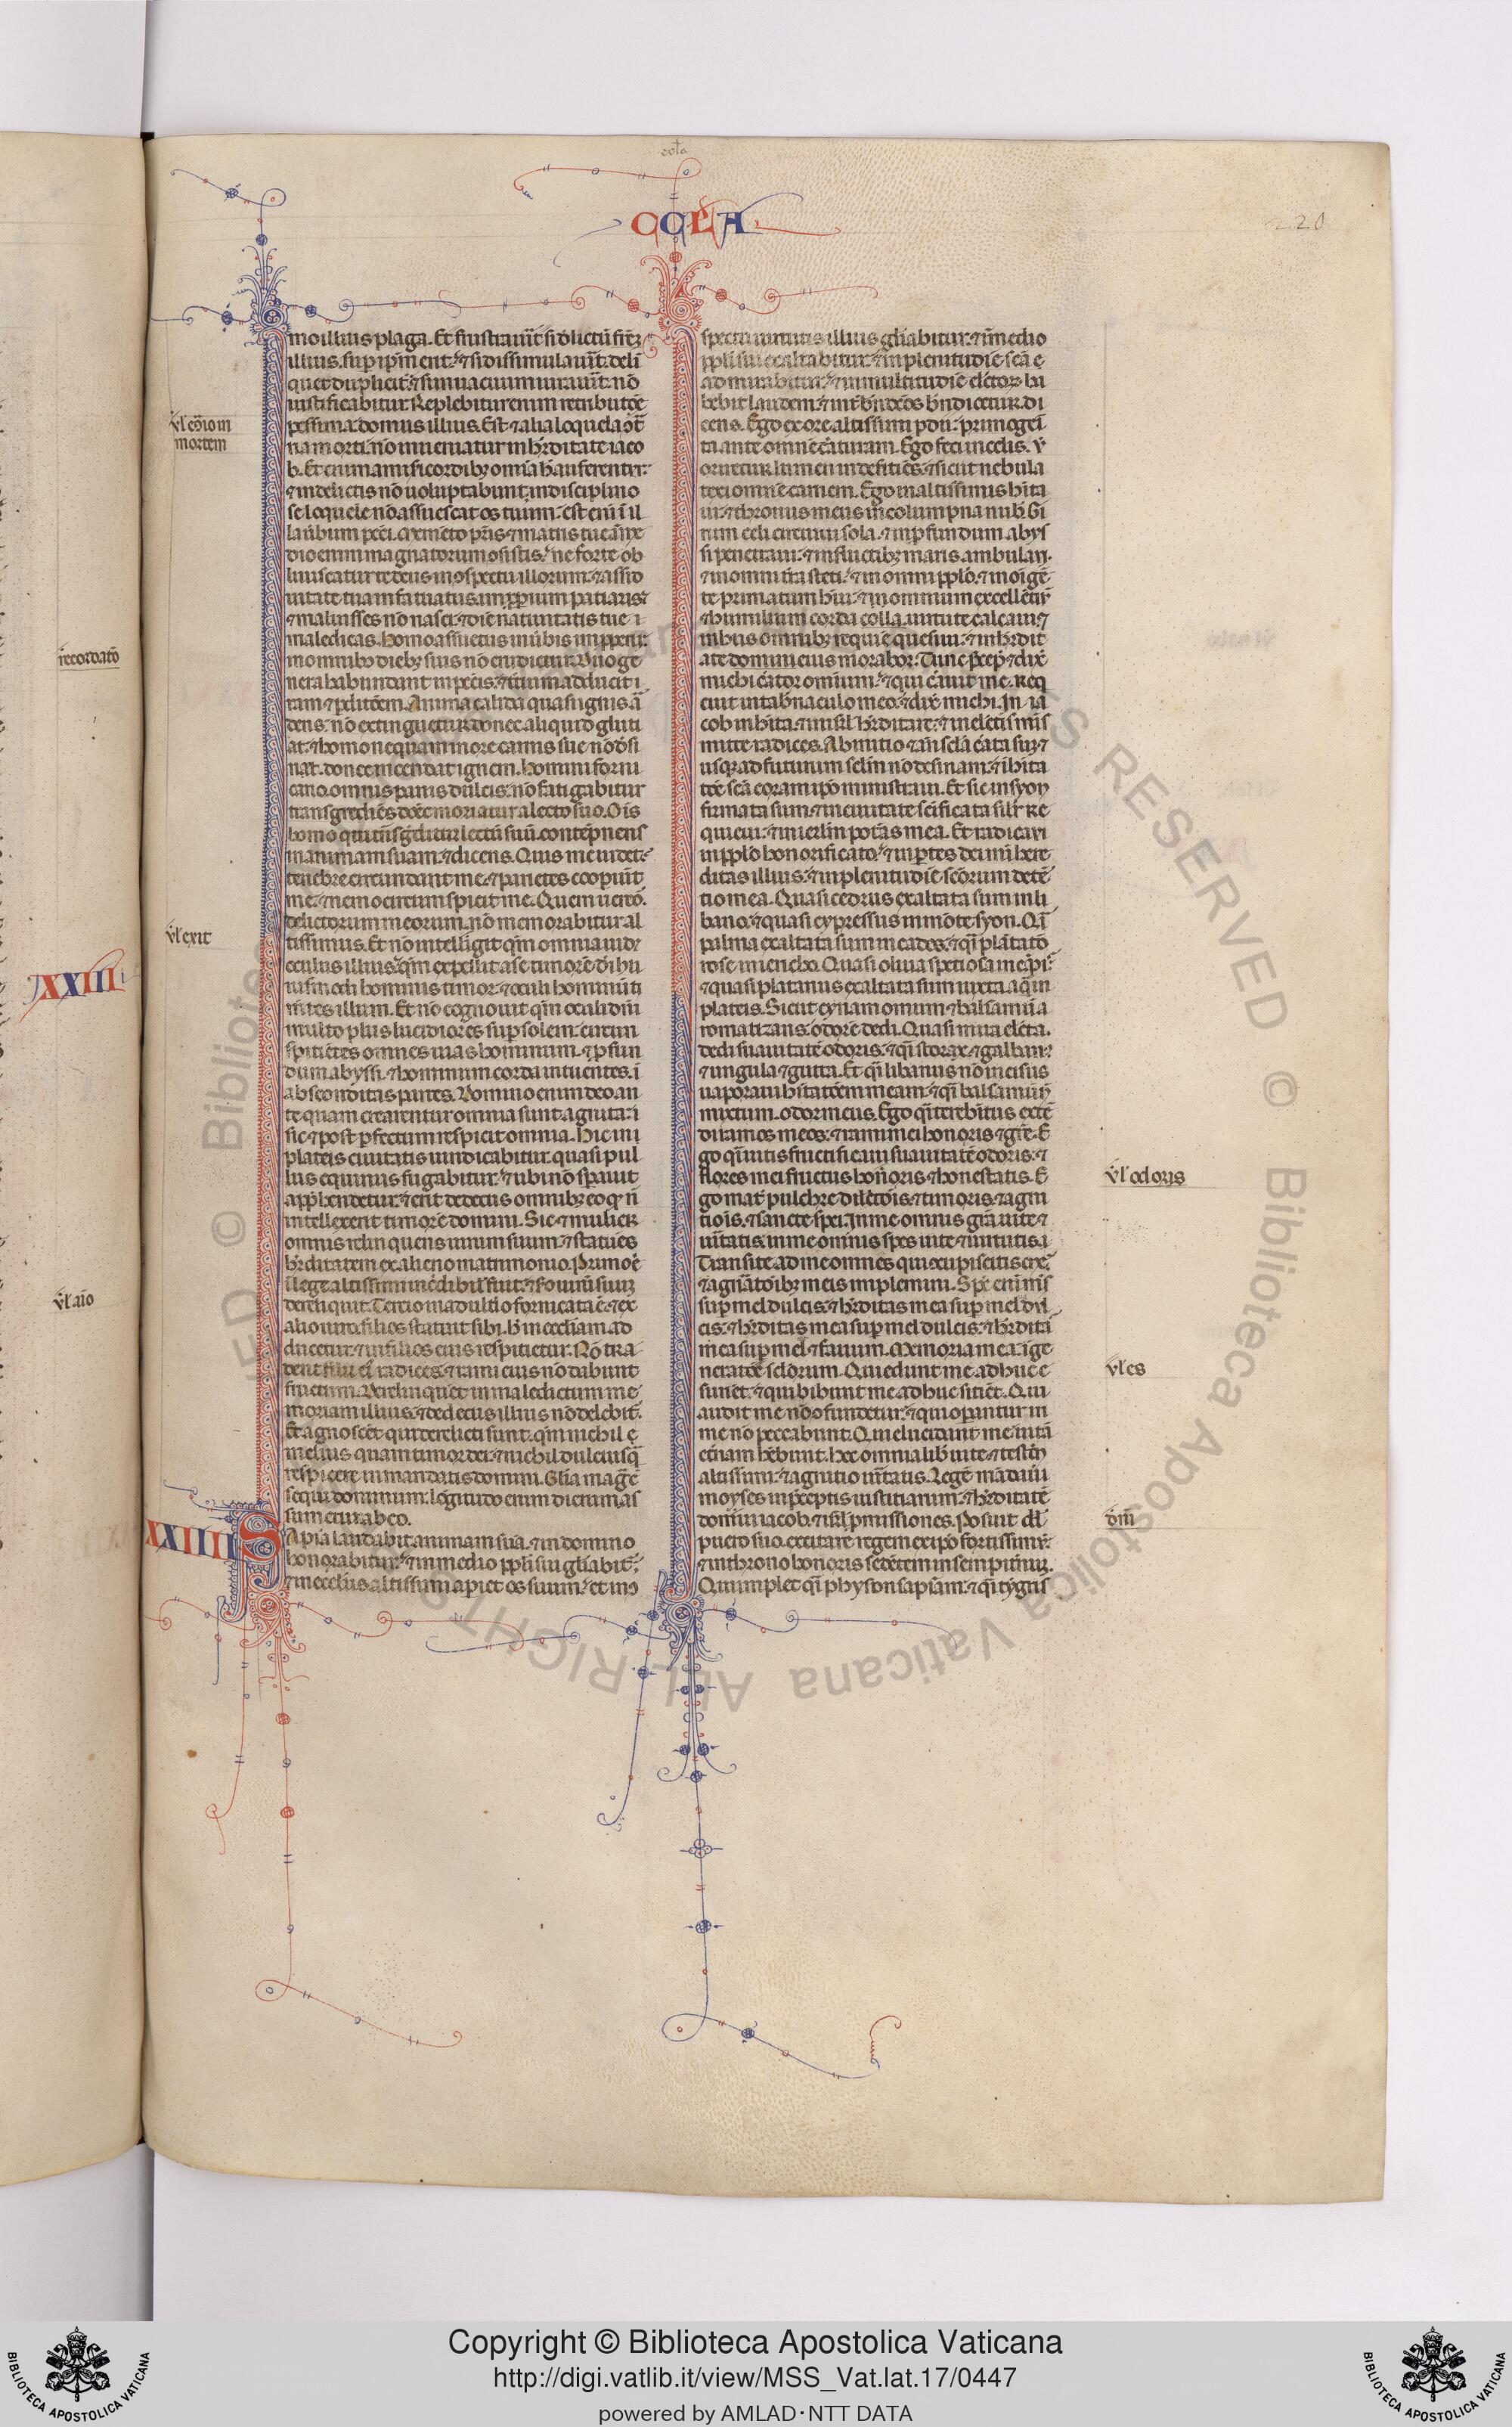 ccl'a
CCL'A
220
mo illius plaga. Et si frustrauit̄ si dlictū sup̄
illius. sup ip̄m erit. ⁊ si dissimulauit̄. deli
quet duplicit̄. ⁊ si in uacuum iurauit̄. nō
iustificabitur. Replebitur enim retributōe
pessima domus illius. Est ⁊ alia loquela ↄt̄
na morti. nō inueniatur in h̄ditate iaco
b. Et enim a misericordibꝫ omīa h̄ auferentur.
⁊ in delictis nō uoluptabunt. indisciplino
se loquele nō assuescat os tuum. est enī ī il
la ūbum pcc̄i.
dio enim magnatorum ↄsistis. ne forte ob
liuiscatur te deus in ↄspectu illorum. ⁊ assid
uitate tua infatuatus. improperium patiaris.
⁊ maluisses nō nasci. ⁊ diē natiuitatis tue
maledicas. Homo assuetus in ūbis improperii.
in omnibꝫ diebꝫ suis nō erudietur. Duo ge
nera habundant in pcc̄is. ⁊ tercium adducit i
ram ⁊ pditōem. Anima calida quasi ignis ar
dens. nō extinguetur donec aliquid gluti
at. ⁊ homo nequam in ore carnis sue nō desi
nat. donec incendat ignem. Homini forni
cario omnis panis dulcis. nō fatigabitur
transgrediēs
homo qui tn̄sgditur lectū suū. contēpnens
in animam suam. ⁊ dicens. Quis me uidet.
tenebre circundant me. ⁊ parietes cooperiūt
me. ⁊ nemo circumspicit me. Quem uereor.
delictorum meorum. nō memorabitur al
tissimus. Et nō intelligit qm̄ omnia uidet
oculus illius. qm̄ expellit a se timorē dei hu
iusmodi hominis timor. ⁊ oculi hominū ti
m̄tes illum. Et nō cognouit qm̄ oculi dn̄i
multo plus lucidiores sup solem. circun
spiciētes omnes uias hominum. ⁊ p̄fun
dum abyssi. ⁊ hominum corda intuentes. ī
absconditas partes. Domino enim deo an
te quam crearentur omnia sunt agnita.
sic ⁊ post pfectum respicit omnia. Hic in
plateis ciuitatis uindicabitur. quasi pul
lus equinus fugabitur. ⁊ ubi nō sp̄auit
apphendetur. ⁊ erit dedecus omnibꝫ eo qꝫ nō
intellexerit timorē domini. Sic ⁊ mulier
omnis relinquens uirum suum. ⁊ statuēs
h̄ditatem ex alieno matrimonio. Primo ē
ī lege altissimi incredibilis fuit. ⁊ ↄ̄ uirū suū
dereliquit. Tercio in adult̄io fornicata ē. ⁊ ex
alio uiro filios statuit sibi. H̄ in ecclesiam ad
ducetur. ⁊ in filios eius respicietur. Nō tra
dent filii eī radices. ⁊ rami eius nō dabunt
fructum. Derelinquet in maledictum me
moriam illius. ⁊ dedecus illius nō delebit̄.
Et agnoscēt qui derelicti sunt. qm̄ nichil ē
melius quam timor dei. ⁊ nichil dulcius q̄
respicere in mandatis domini. Gl̄ia magᵃ ē
sequi dominum. lōgitudo enim dierum as
sumetur ab eo.
XXIIII
Sapīa laudabit animam suā. ⁊ in domino
honorabitur. ⁊ in medio pp̄li sui gl̄iabit̄.
⁊ in eccl̄iis altissimi apiet os suum. et in ↄ
spectu uirtutis illius gl̄iabitur. ⁊ in medio
pp̄li sui exaltabitur. ⁊ in plenitudīe scā ē
admirabitur. ⁊ in multitudīe elc̄torꝫ ha
bebit laudem. ⁊ int̄ bn̄dc̄os bn̄dicetur. di
cens. Ego ex ore altissimi pdii. primogeī
ta ante omnē creaturam. Ego feci in celis. ut
oriretur lumen indeficiēs. ⁊ sicut nebula
texi omnē carnem. Ego in altissimis h̄ita
ui. ⁊ thronus meus in columpna nubis. Gi
rum celi circuiui sola. ⁊ in p̄fundum abys
si penetraui. ⁊ in fluctibꝫ maris ambulaui.
⁊ in omni tr̄a steti. ⁊ in omni pp̄lo. ⁊ in oī gē
te primatum h̄ui. ⁊ omnium excellētiū
⁊ humilium corda colla uirtute calcaui. ⁊
in hiis omnibꝫ requiē quesiui. ⁊ in h̄dit
ate domini eius morabor. Tunc p̄cep̄ ⁊ dix̄
michi creator omnium. ⁊ qui creauit me. req
euit in tab̄naculo meo. ⁊ dix̄ michi. In ia
cob inh̄ita. ⁊ in isrl̄ h̄ditare. ⁊ in elc̄tis meis
mitte radices. Ab initio ⁊ an̄ scl̄a creata sum. ⁊
usqꝫ ad futurum scl̄m nō desinam. ⁊ in h̄ita
tōe scā coram ipō ministraui. Et sic in syon
firmata sum. ⁊ in ciuitate scificata silr̄ re
quieui. ⁊ in ierlm̄ potās mea. Et radicaui
in pp̄lo honorificato. ⁊ in ptes dei mei here
ditas illius. ⁊ in plenitudīe scōrum detē
tio mea. Quasi cedrus exaltata sum in li
bano. ⁊ quasi cypressus in mōte syon. Qī
palma exaltata sum in cades. ⁊ qī plātatō
rose in ierico. Quasi oliua speciosa in cāpis.
⁊ quasi platanus exaltata sum iuxta aqᵃm
plateis. Sicut cynamomum ⁊ balsamū a
romatizans. odorē dedi. Quasi mirra elc̄ta.
dedi suauitatē odoris. ⁊ qī storax. ⁊ galban.
⁊ ungula ⁊ gutta. Et qī libanus nō incisus
uaporaui h̄itatōem meam. ⁊ qī balsamū n̄
mixtum. odor meus. Ego qī terebītus extē
di ramos meos. ⁊ rami mei honoris ⁊ gr̄e. E
go qī uitis fructificaui suauitatē odoris. ⁊
flores mei fructus honoris ⁊ honestatis. E
go mat̄ pulchre dilc̄tōis. ⁊ timoris. ⁊ agni
tiōis. ⁊ sancte spei. In me omnis grā uite ⁊
uītatis. in me omnis spes uite ⁊ uirtutis.
Transite ad me omnes qui ↄcupiscitis me.
⁊ a gn̄atōibꝫ meis implemini. Spc̄ enī m̄s
sup mel dulcis. ⁊ h̄ditas mea sup mel dul
cis. ⁊ h̄ditas mea sup mel dulcis. ⁊ h̄dita
mea sup mel ⁊ fauum. Memoria mea. ī ge
neratōe sclorum. Qui edunt me adhuc e
surient. ⁊ qui bibunt me adhuc sitiēt. Qui
audit me nō ↄfundetur. ⁊ qui opantur in
me nō peccabunt. Qui elucidant me uitā
et̄nam h̄ebunt. Hec omnia lib̄ uite. ⁊ testm̄
altissimi. ⁊ agnitio uītatis. Legē mādauit
moyses in p̄ceptis iustitiarum. ⁊ h̄ditatē
domui iacob. ⁊ isrl̄ p̄missiones. Posuit dd̄
puero suo. excitare regem ex ipō fortissimū.
⁊ in throno honoris sedētem in sempit̄nuꝫ.
Qui implet qī physon sapīam. ⁊ qī tygris
ul' ↄ̄iom
mortem
recordatō
ul' exit
XXIII
ul' aīo
ul' odoris
ul' es
dn̄i
Copyright © Biblioteca Apostolica Vaticana
http://digi.vatlib.it/view/MSS_Vat.lat.17/0447
powered by AMLAD·NTT DATA
BIBLIOTECA APOSTOLICA VATICANA
BIBLIOTECA APOSTOLICA VATICANA
© Biblioteca Apostolica Vaticana ALL RIGHTS RESERVED